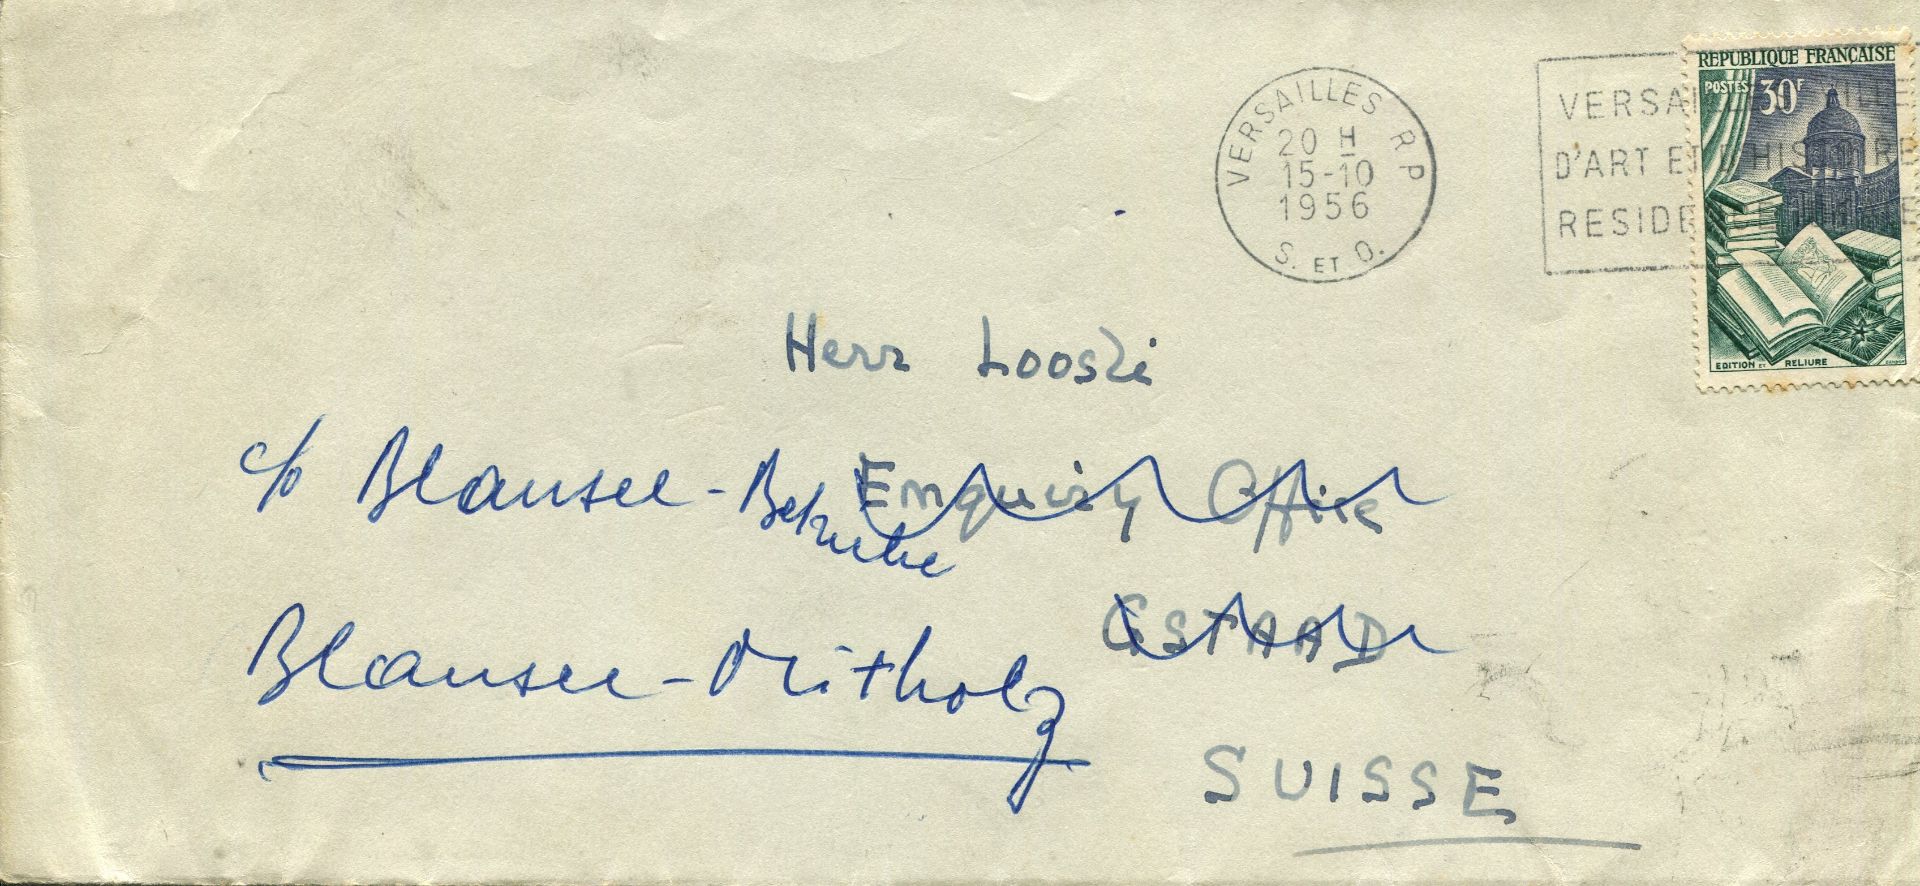 VERSAILLES R P
20 H
15-10
1956
S. ET O.
VERSA
D'ART ET D'HISTOIRE
RESIDE
REPUBLIQUE FRANÇAISE
POSTES 30F
EDITION ET RELIURE
Herr Loosli
c/o Blausee - Betriebe
Enquiry Office
Blausee - Mitholz
GSTAAD
SUISSE